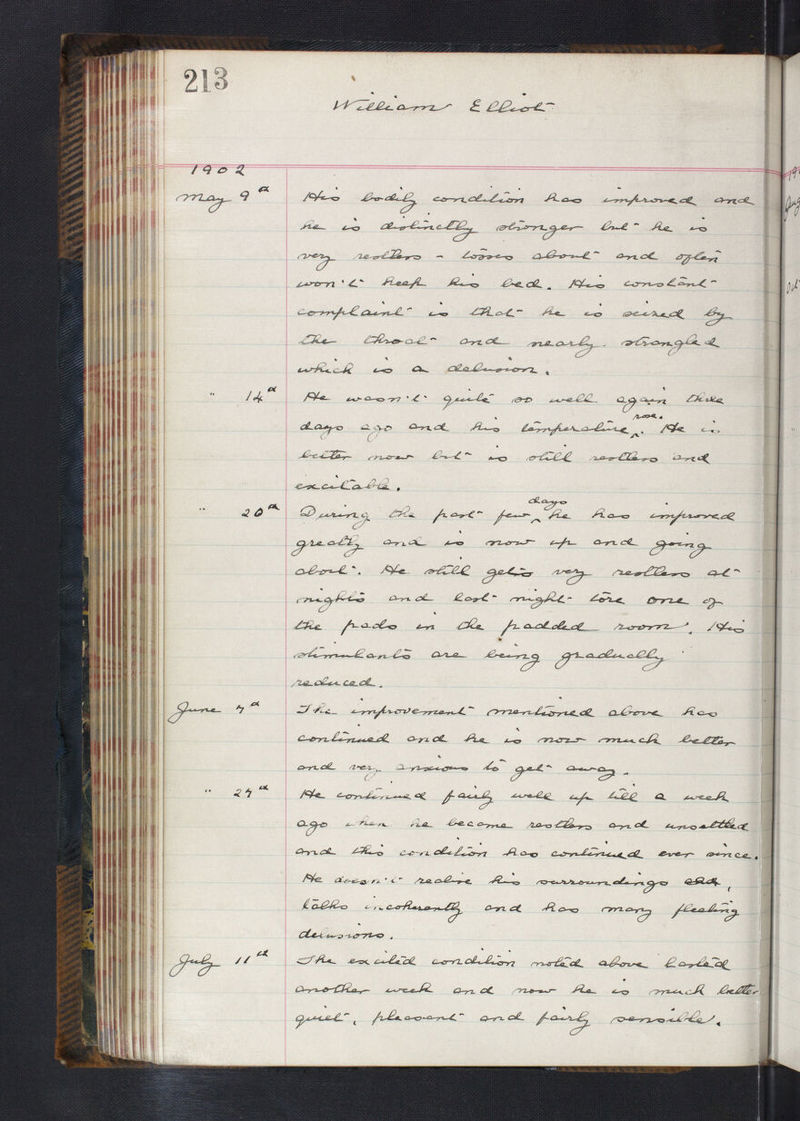 213
William Elliot
1902
May 9th His bodily condition has improved and
he is distinctly stronger but he is
very restless - tosses about and often
won't keep his bed. His constant
complaint is that he is seized by
the throat and nearly strangled
which is a delusion.
" 14th He wasn't quite so well again three
days ago and his temperature ^rose. He is
better now but is still restless and
excitable.
" 20th During the past few ^days he has improved
greatly and is now up and going
about. He still gets very restless at
nights and last night tore one of
the pads in the padded room. His
stimulants are being gradually
reduced.
June 7th The improvement mentioned above has
continued and he is now much better
and very anxious to get away.
" 27th He continued fairly well up till a week
ago when he became restless and unsettled
and this condition has continued ever since.
He doesn't realise his surroundings,
talks incoherently and has many fleeting
delusions.
July 11th The excited condition noted above lasted
another week and now he is much better
quiet, pleasant and fairly sensible.